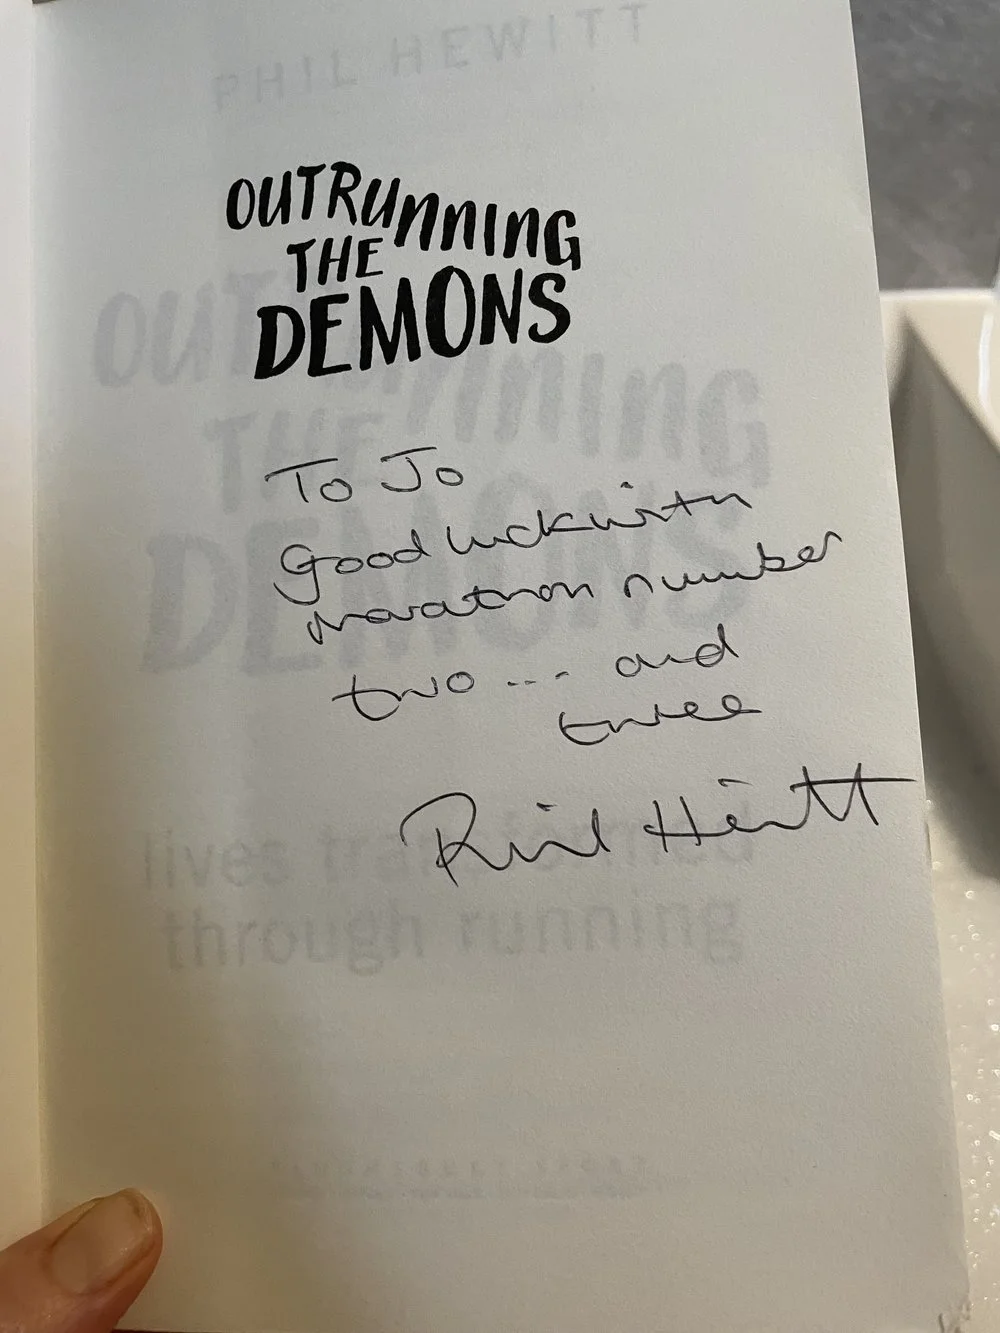 PHIL HEWITT
OUTRUNNING
THE
DEMONS
OUTRUNNING
THE
DEMONS
To Jo
Good luck with
marathon number
two ... and
three
Phil Hewitt
lives transformed
through running